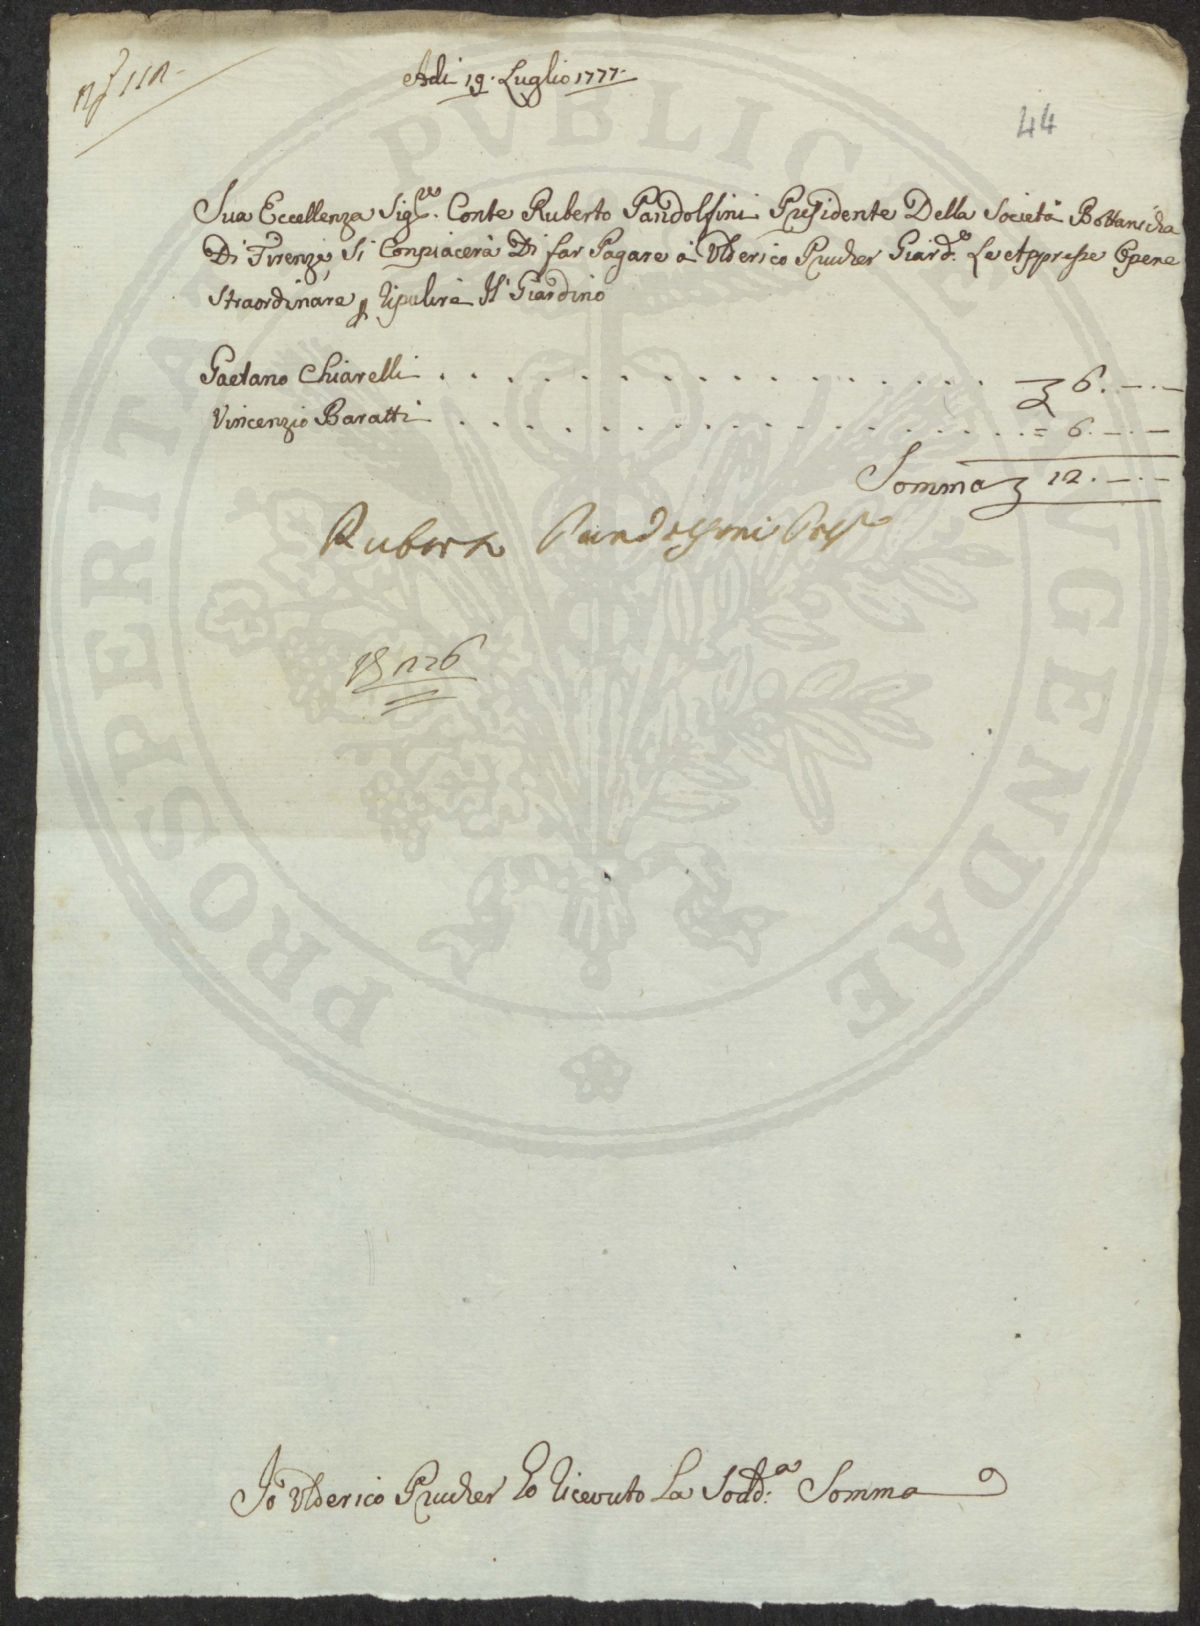 Adi 19. Luglio 1777.
44
Sua Eccellenza Sig.re Conte Ruberto Pandolfini Presidente Della Società Bottanicha
Di Firenze, Si Conpiacerà Di far Pagare à Ulderico Prucher Giard.e Le Appresse Opene
Straordinare p Ripulire Il Giardino
Gaetano Chiarelli . . . . . . . . . . . . . . . . £ 6. —.—
Vincenzio Baratti . . . . . . . . . . . . . . . . = 6. —.—
Somma £ 12. —.—
Ruberto Pandolfini Pres.e
126
Io Ulderico Prucher Ho Ricevuto La Sodd.a Somma
PROSPERITATI PVBLICAE AVGENDAE